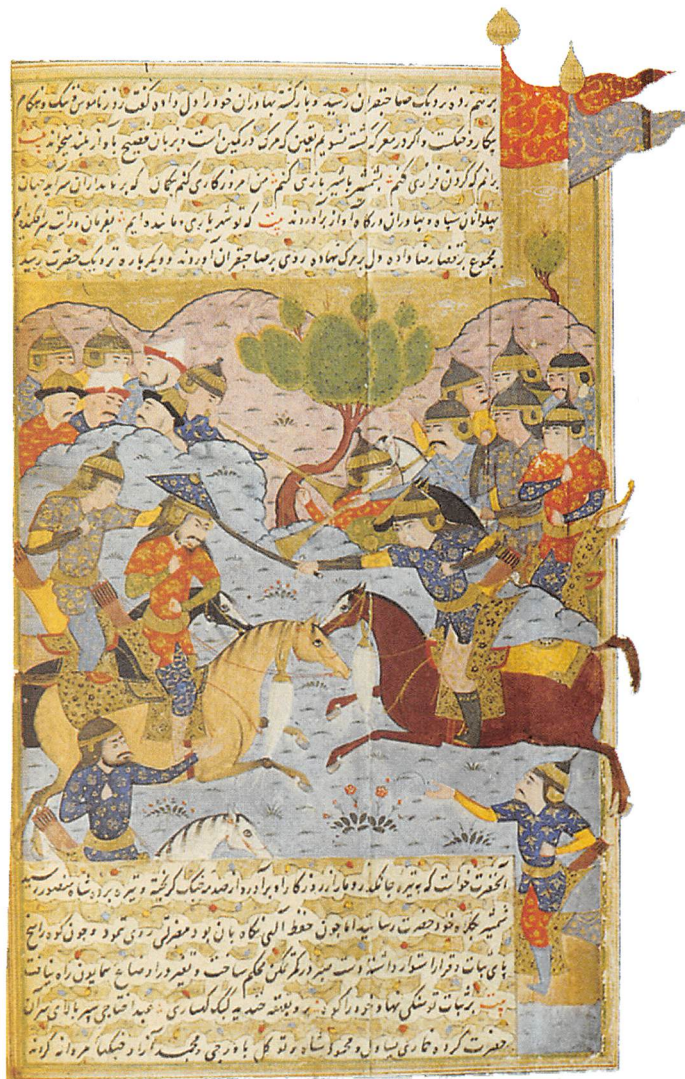 برهم زده نزدیک صاحبقران رسید و بار کشته بهادران خود را دل داده گفت روز ناموس ننک و هنکام
بیکار و جنکست و اکر در معرکه کشته نشویم یقین که مرک در کمین است و بزبان فصیح باواز بلند میخواند بیت
برانم که کردن فرازی کنم بشمشیر با شیر بازی کنم من امروز کاری کنم کان که بر نامداران سر آید جهان
پهلوانان سپاه و بهادران درکاه آواز برآوردند بیت که تو شهریاری و ما بنده ایم بفرمان و رایت سرافکنده ایم
مجموع بر قضا رضا داده دل بر مرک نهاده روی بر صاحبقران آوردند و دیکر باره نزدیک حضرت رسید
آنحضرت خواست که به نیزه جانکداز دمار از روزکار او برآرد از صدمه جنک کریخته و نیزه برده شاه منصور رسید
شمشیر بکلاه خود حضرت رسانید اما چون حفظ الهی نکاهبان بود مضرتی روی ننمود و چون کوه راسخ
پای ثبات و قرار استوار داشته دست صبر در کمر تمکن محکم ساخت و تغیر در اوضاع همایون راه نیافت
بیت بر ثبات تو شکی نهاد خود را کوه برو بقهقه خندید کبک کهساری عبد اختاجی سپر بالای سر آن
حضرت کرده خماری یساول و محمود شاه و توکل باورجی محمد آزاد جنکها مردانه کرده